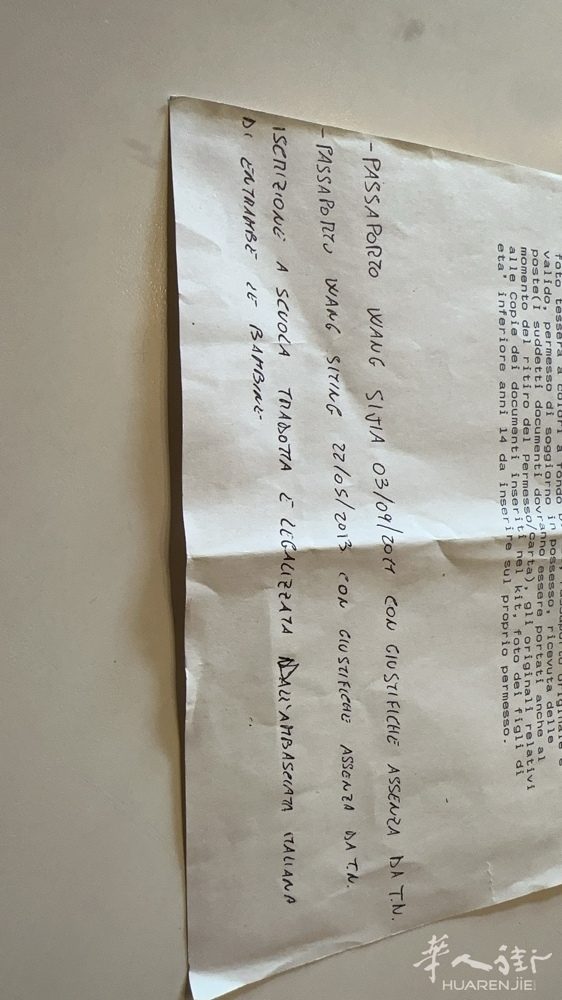 foto tessera a colori a fondo
valido, permesso di soggiorno in possesso, ricevuta delle
poste(i suddetti documenti dovranno essere portati anche al
momento del ritiro del permesso/carta), gli originali relativi
alle copie dei documenti inseriti nel kit, foto dei figli di
eta' inferiore anni 14 da inserire sul proprio permesso.
-PASSAPORTO WANG SIJIA 03/09/2011 CON GIUSTIFICHE ASSENZA DA T.N.
-PASSAPORTO WANG SITING 22/05/2013 CON GIUSTIFICHE ASSENZA DA T.N.
ISCRIZIONE A SCUOLA TRADOTTA E LEGALIZZATA DALL'AMBASCIATA ITALIANA
DI ENTRAMBE LE BAMBINE
华人街
HUARENJIE